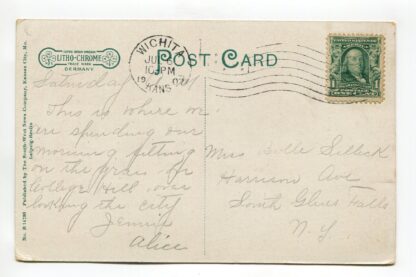 LITHO-CHROME
TRADE MARK
GERMANY
POST CARD
WICHITA
10 PM
1907
KANS
Saturday
This is where we
are spending our
morning sitting
on the grass for
College Hill over
looking the city
Jennie
Alice
Miss Belle Selleck
Harrison Ave
South Glens Falls
N.Y.
Published by The South-West News Company, Kansas City, Mo.